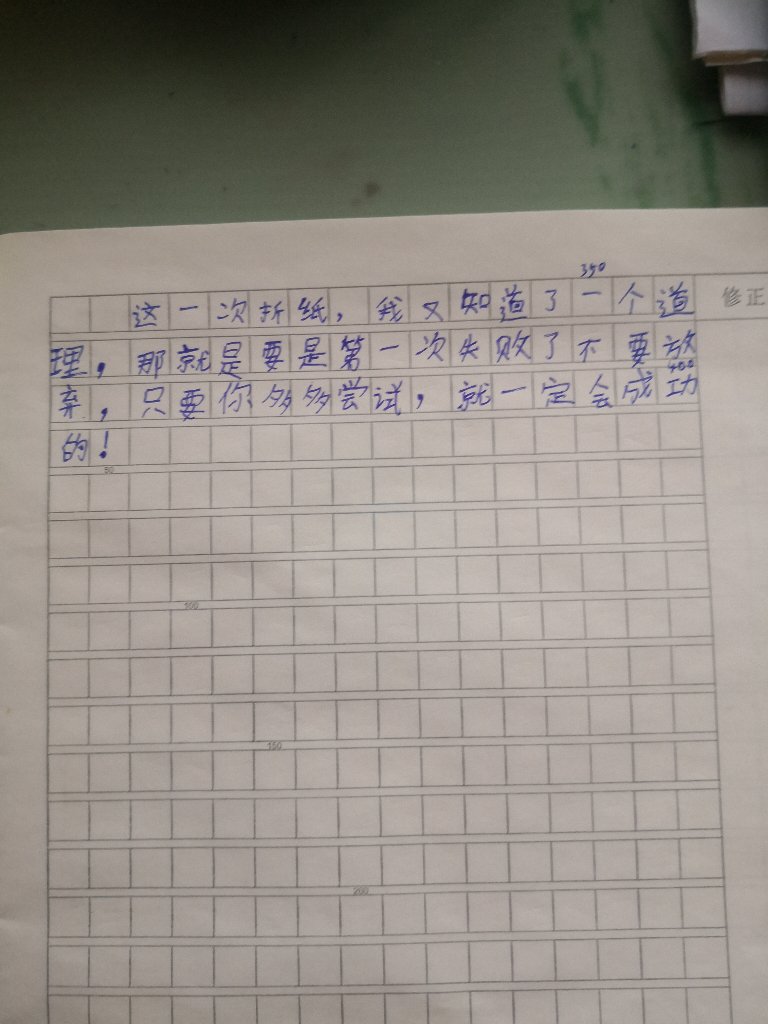 350
这一次折纸，我又知道了一个道
修正
理，那就是要是第一次失败了不要放
400
弃，只要你多多尝试，就一定会成功
的！
50
100
150
200